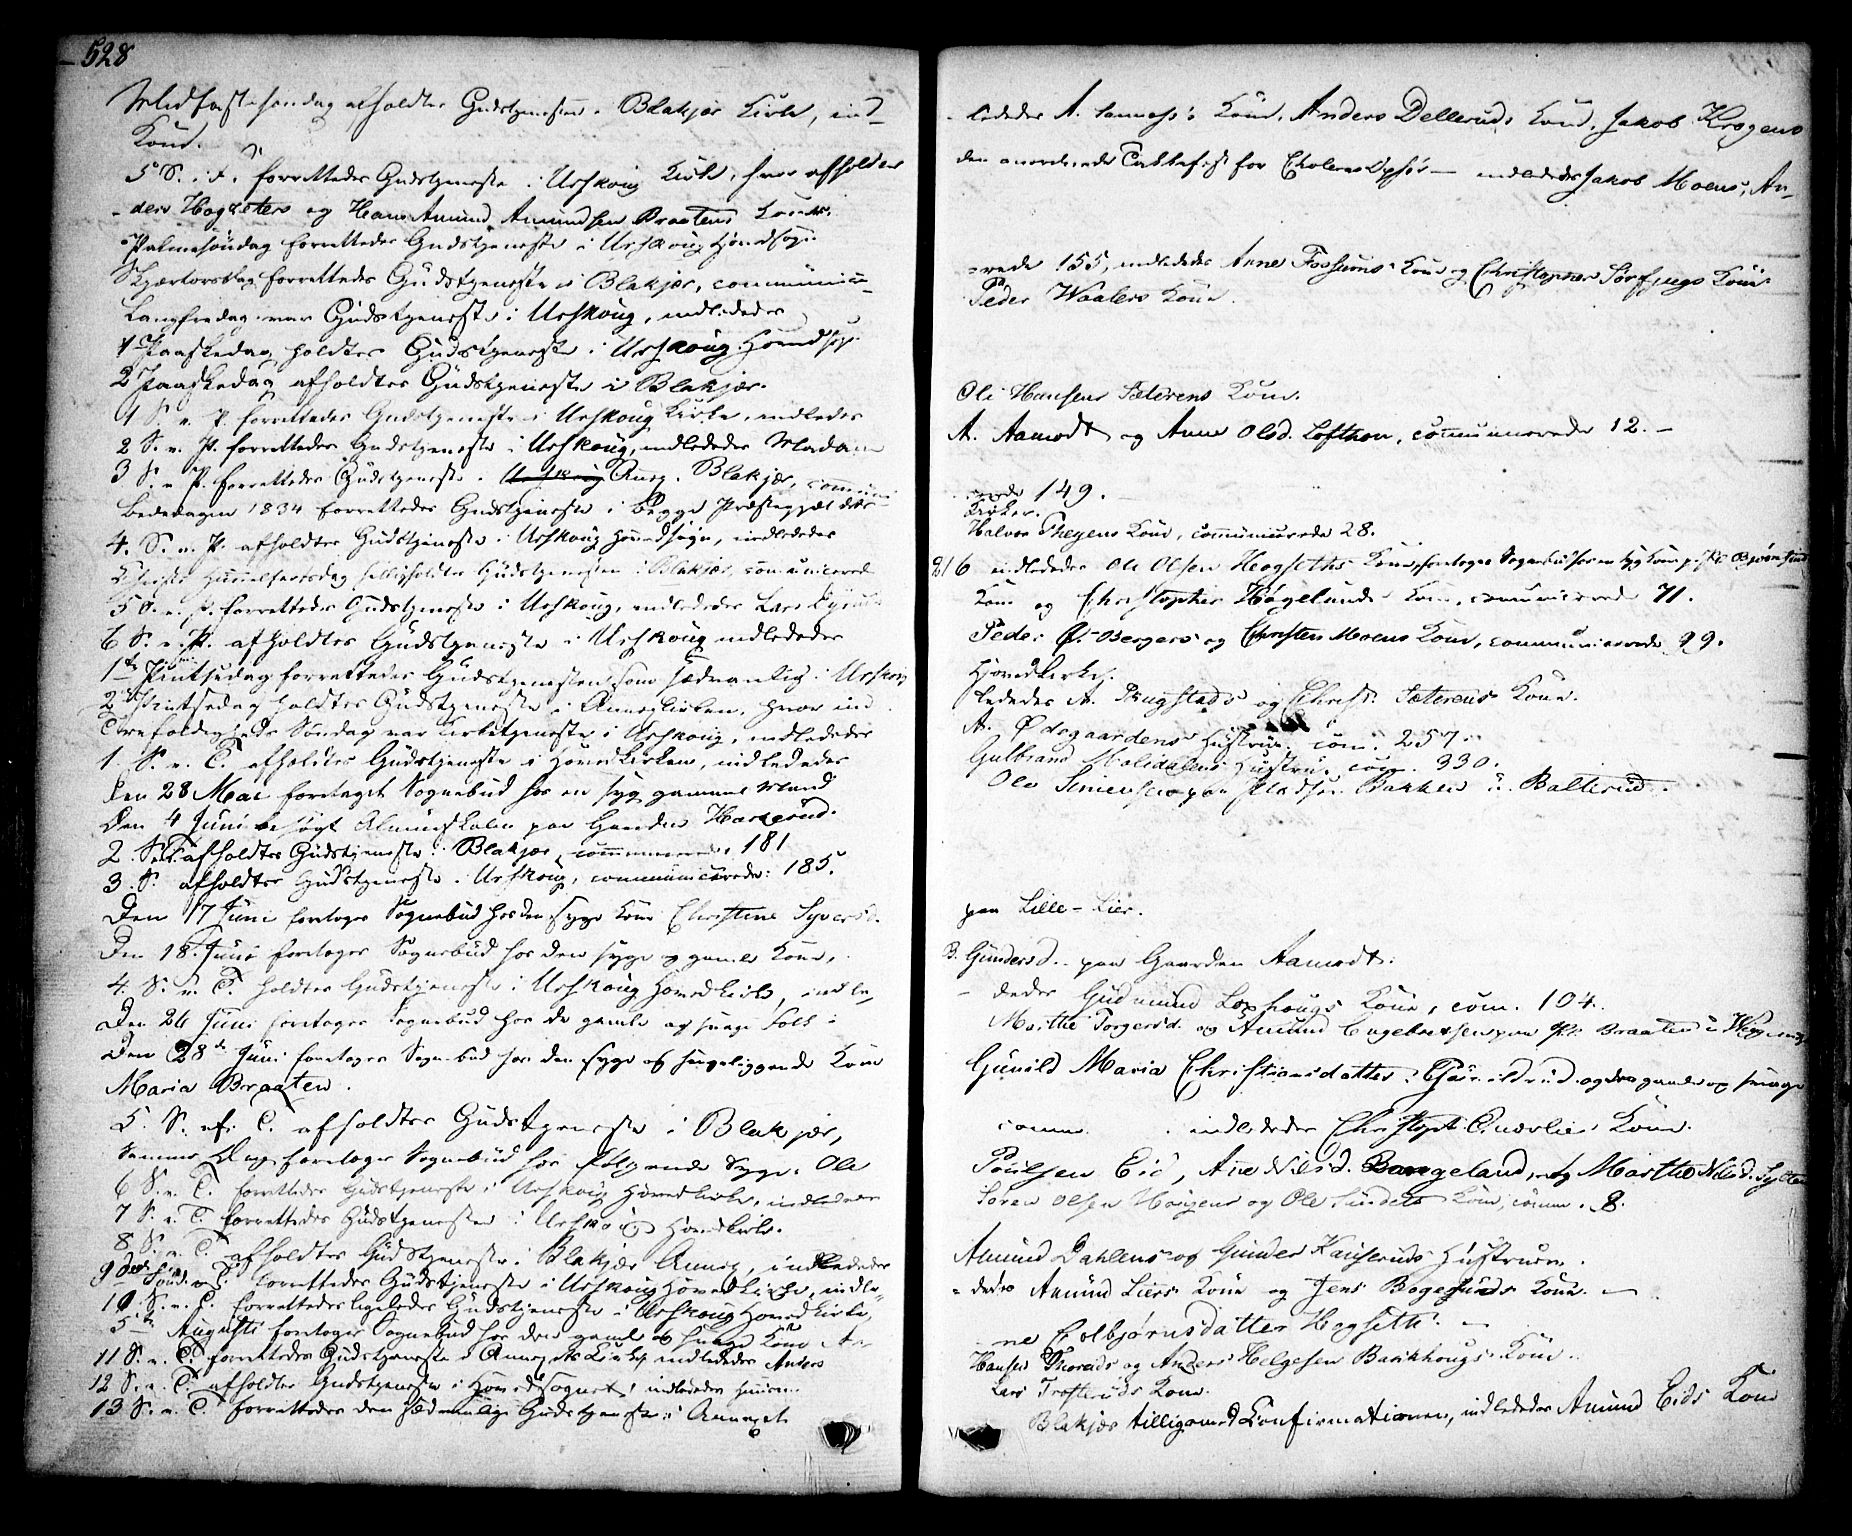 528
Midfastesøndag afholdtes Gudstjenesten i Blakjer Kirke, ind-
Kone.
5 S. i F. forrettedes Gudstjeneste i Urskoug Kirke, hvor afholdtes
ders Hogseters og Hans Amund Amundsen Braatens Koner.
Palmesøndag forrettedes Gudstjeneste i Urskoug Hovedsogn
Skjærtorsdag forrettedes Gudstjeneste i Blakjer, communice-
Langfredag var Gudstjeneste i Urskoug, indlededes
1 Paaskedag holdtes Gudstjeneste i Urskoug Hovedsogn.
2 Paaskedag afholdtes Gudstjeneste i Blakjer.
1 S. e. P. forrettedes Gudstjeneste i Urskoug Kirke, indledes
2 S. e. P. forrettedes Gudstjeneste i Urskoug, indlededes Madam
3 S. e. P. forrettedes Gudstjeneste i Urskoug Anex. Blakjer, communi
Bededagen 1834 forrettedes Gudstjeneste i begge Præstegjeldets
4. S. e. P. afholdtes Gudstjeneste i Urskoug Hovedsogn, indlededes
Christi Himmelfartsdag helligholdtes Gudstjenesten i Blakjer, communicerede
5 S. e. P. forrettedes Gudstjeneste i Urskoug, indlededes Lars
6 S. e. P. afholdtes Gudstjeneste i Urskoug indlededes
1ste Pintsedag forrettedes Gudstjenesten som sædvanlig i Urskoug
2den Pintsedag holdtes Gudstjeneste i Annexkirken, hvor ind
Trefoldigheds Søndag var Kirketjeneste i Urskoug, indlededes
1. S. e. T. afholdtes Gudstjeneste i Hovedkirken, indlededes
Den 28 Mai foretaget Sognebud hos en syg gammel Mand
Den 4 Juni besøgt Almueskolen paa Gaarden Harkerud.
2. S. e. T. afholdtes Gudstjeneste i Blakjer, communicerede 181
3. S. afholdtes Gudstjeneste i Urskoug, communicerede: 185.
Den 17 Juni foretoges Sognebud hos den syge Kone Christine Syversd.
Den 18. Juni foretoges Sognebud hos den syge og gamle Kone,
4. S. e. T. holdtes Gudstjeneste i Urskoug Hovedkirke, indle-
Den 26 Juni foretoges Sognebud hos de gamle og svage Folk:
Den 28de Juni foretoges Sognebud hos den syge og sengeliggende Kone
Maria Braaten.
5. S. ef. T. afholdtes Gudstjeneste i Blakjer,
Samme Dag foretoges Sognebud hos følgende Syge: Ole
6 S. e. T. forrettedes Gudstjeneste i Urskoug Hovedkirke, indlededes
7 S. e. T. forrettedes Gudstjenesten i Urskoug Hovedkirke.
8 S. e. T. afholdtes Gudstjeneste i Blakjer Annex, indlededes
9de Sønd. e. T. forrettedes Gudstjeneste i Urskoug Hovedkirke, indle-
10. S. e. T. forrettedes ligeledes Gudstjeneste i Urskoug Hovedkirke,
5te Augusti foretoges Sognebud hos den gamle og svage Kone An-
11 S. e. T. forrettedes Gudstjeneste i Annex Kirke indlededes Anders
12 S. e. T. afholdtes Gudstjeneste i Hovedsognet, indlededes
13 S. e. T. forrettedes den sædvanlige Gudstjeneste i Annexet
lededes A. Kone, Anders Dellerud's Kone, Jakob Krogens
den anordnede Taksefest for Choleras Ophør — indlededes Jakob Moens, An-
rede 155, indlededes Anne Fossums Kone og Christopher Sørfjugs Kone
Peder Waalers Kone.
Ole Hansens Sæterens Kone.
A. Aamodt og Anne Olsd. Lofthon, communicerede 12. —
rede 149.
Kirker.
Halvor Thegens Kone, communicerede 28.
216 indlededes Ole Olsen Hogseths Kone, foretoges Sognebud hos en syg Kone p. Pl. Bjørnsund
Kone og Christopher Høgelunds Kone, communicerede 71.
Peder Ø. Bergers og Christen Moens Kone, communicerede 99.
Hovedkirke.
lededes A. Rugstads og Christ. Sæterens Kone.
A. Ødegaardens Hustrue. com. 257.
Gulbrand Molidalens Hustru. com. 330.
Ole Simensen paa Pladsen Bakken u. Balterud.
paa Lille-Lier.
B. Gundersd. paa Gaarden Aamodt.
dedes Gudmund Loxhougs Kone, com. 104.
Marthe Torgersd. og Amund Engebretsen paa Pl. Braaten u.
Gunild Maria Christiansdatter i og den gamle og svage
comm. indlededes Christoph. Kone.
Poulsen Eid, Ane Nilsd. Bangeland, og Marthe Nilsd.
Søren Olsen Hougens og Ole Sundets Kone, comm. 8.
Amund Dahlens og Gunder Kauserud's Hustruer.
dedes Amund Liers Kone og Jens Bogesunds Kone. —
ne Eilbjørnsdatter Hogseth. —
Hansen Thoreids og Anders Helgesen Bankhougs Kone.
Lars Trosteruds Kone.
Blakjer tilligemed Konfirmationen, indlededes Amund Eids Kone